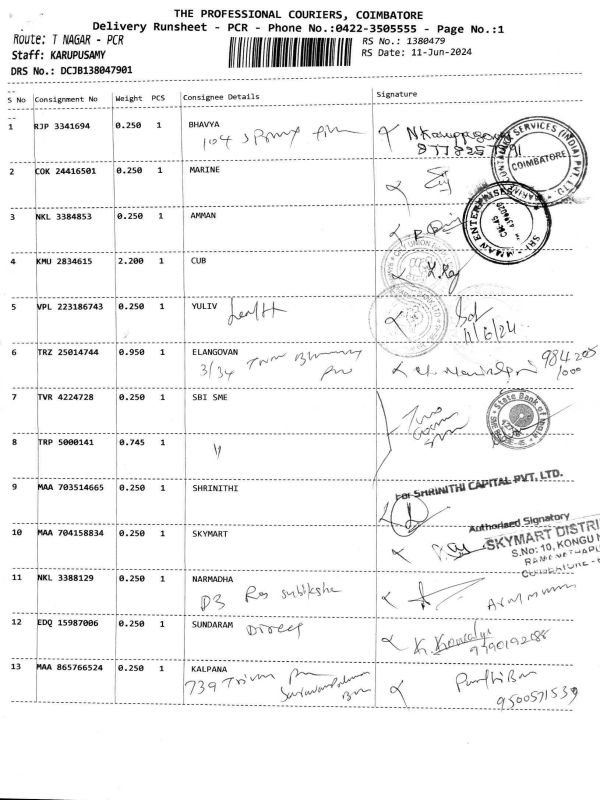 THE PROFESSIONAL COURIERS, COIMBATORE
Delivery Runsheet - PCR - Phone No.:0422-3505555 - Page No.:1
Route: T NAGAR - PCR
RS No.: 1380479
Staff: KARUPUSAMY
RS Date: 11-Jun-2024
DRS No.: DCJB138047901
S No Consignment No Weight PCS Consignee Details Signature
1 RJP 3341694 0.250 1 BHAVYA
104
2 COK 24416501 0.250 1 MARINE
COIMBATORE
3 NKL 3384853 0.250 1 AMMAN
4 KMU 2834615 2.200 1 CUB
5 VPL 223186743 0.250 1 YULIV
11/6/24
6 TRZ 25014744 0.950 1 ELANGOVAN
3/34
984205
1000
7 TVR 4224728 0.250 1 SBI SME
State Bank of India
8 TRP 5000141 0.745 1
9 MAA 703514665 0.250 1 SHRINITHI
For SHRINITHI CAPITAL PVT. LTD.
Authorised Signatory
10 MAA 704158834 0.250 1 SKYMART
SKYMART DISTRI
S.No: 10, KONGU
11 NKL 3388129 0.250 1 NARMADHA
D3 Res Subiksha
12 EDQ 15987006 0.250 1 SUNDARAM Direct
K. Kousalya
13 MAA 865766524 0.250 1 KALPANA
739
9500571539